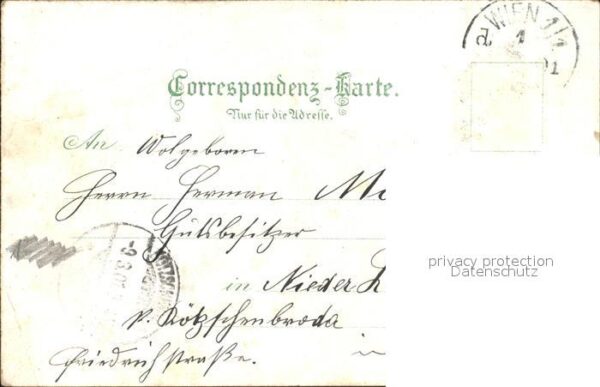 WIEN 1/1
1
Correspondenz-Karte.
Nur für die Adresse.
An Wolgeboren
Herrn Herman
Gutsbesitzer
in Nieder
p. Kötzschenbroda
Friedrichstraße. in
privacy protection
Datenschutz